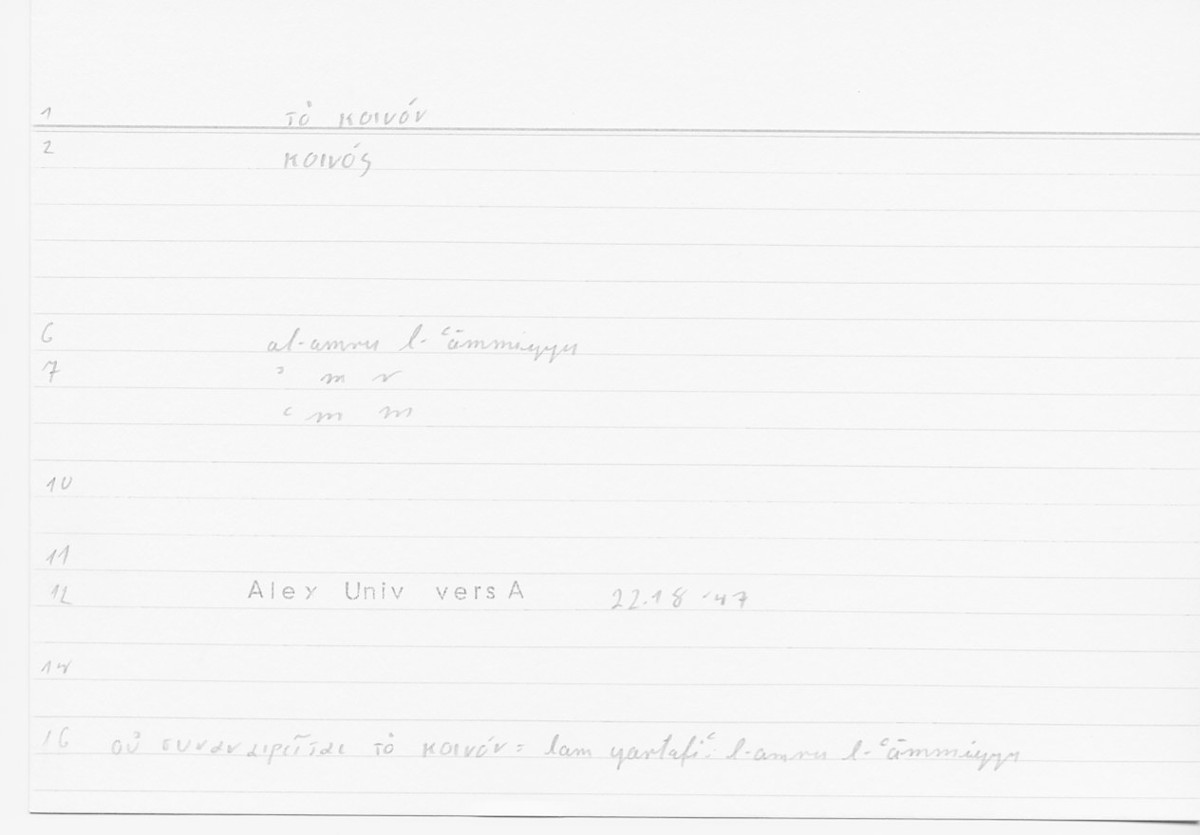 1 τὸ κοινόν
2 κοινός
6 al-amru l-ʿāmmiyyu
7 ʾ m r
ʿ m m
10
11
12 Alex Univ vers A 22.18 -47
14
16 οὐ συναναιρεῖται τὸ κοινόν = lam yartafiʿ l-amru l-ʿāmmiyyu